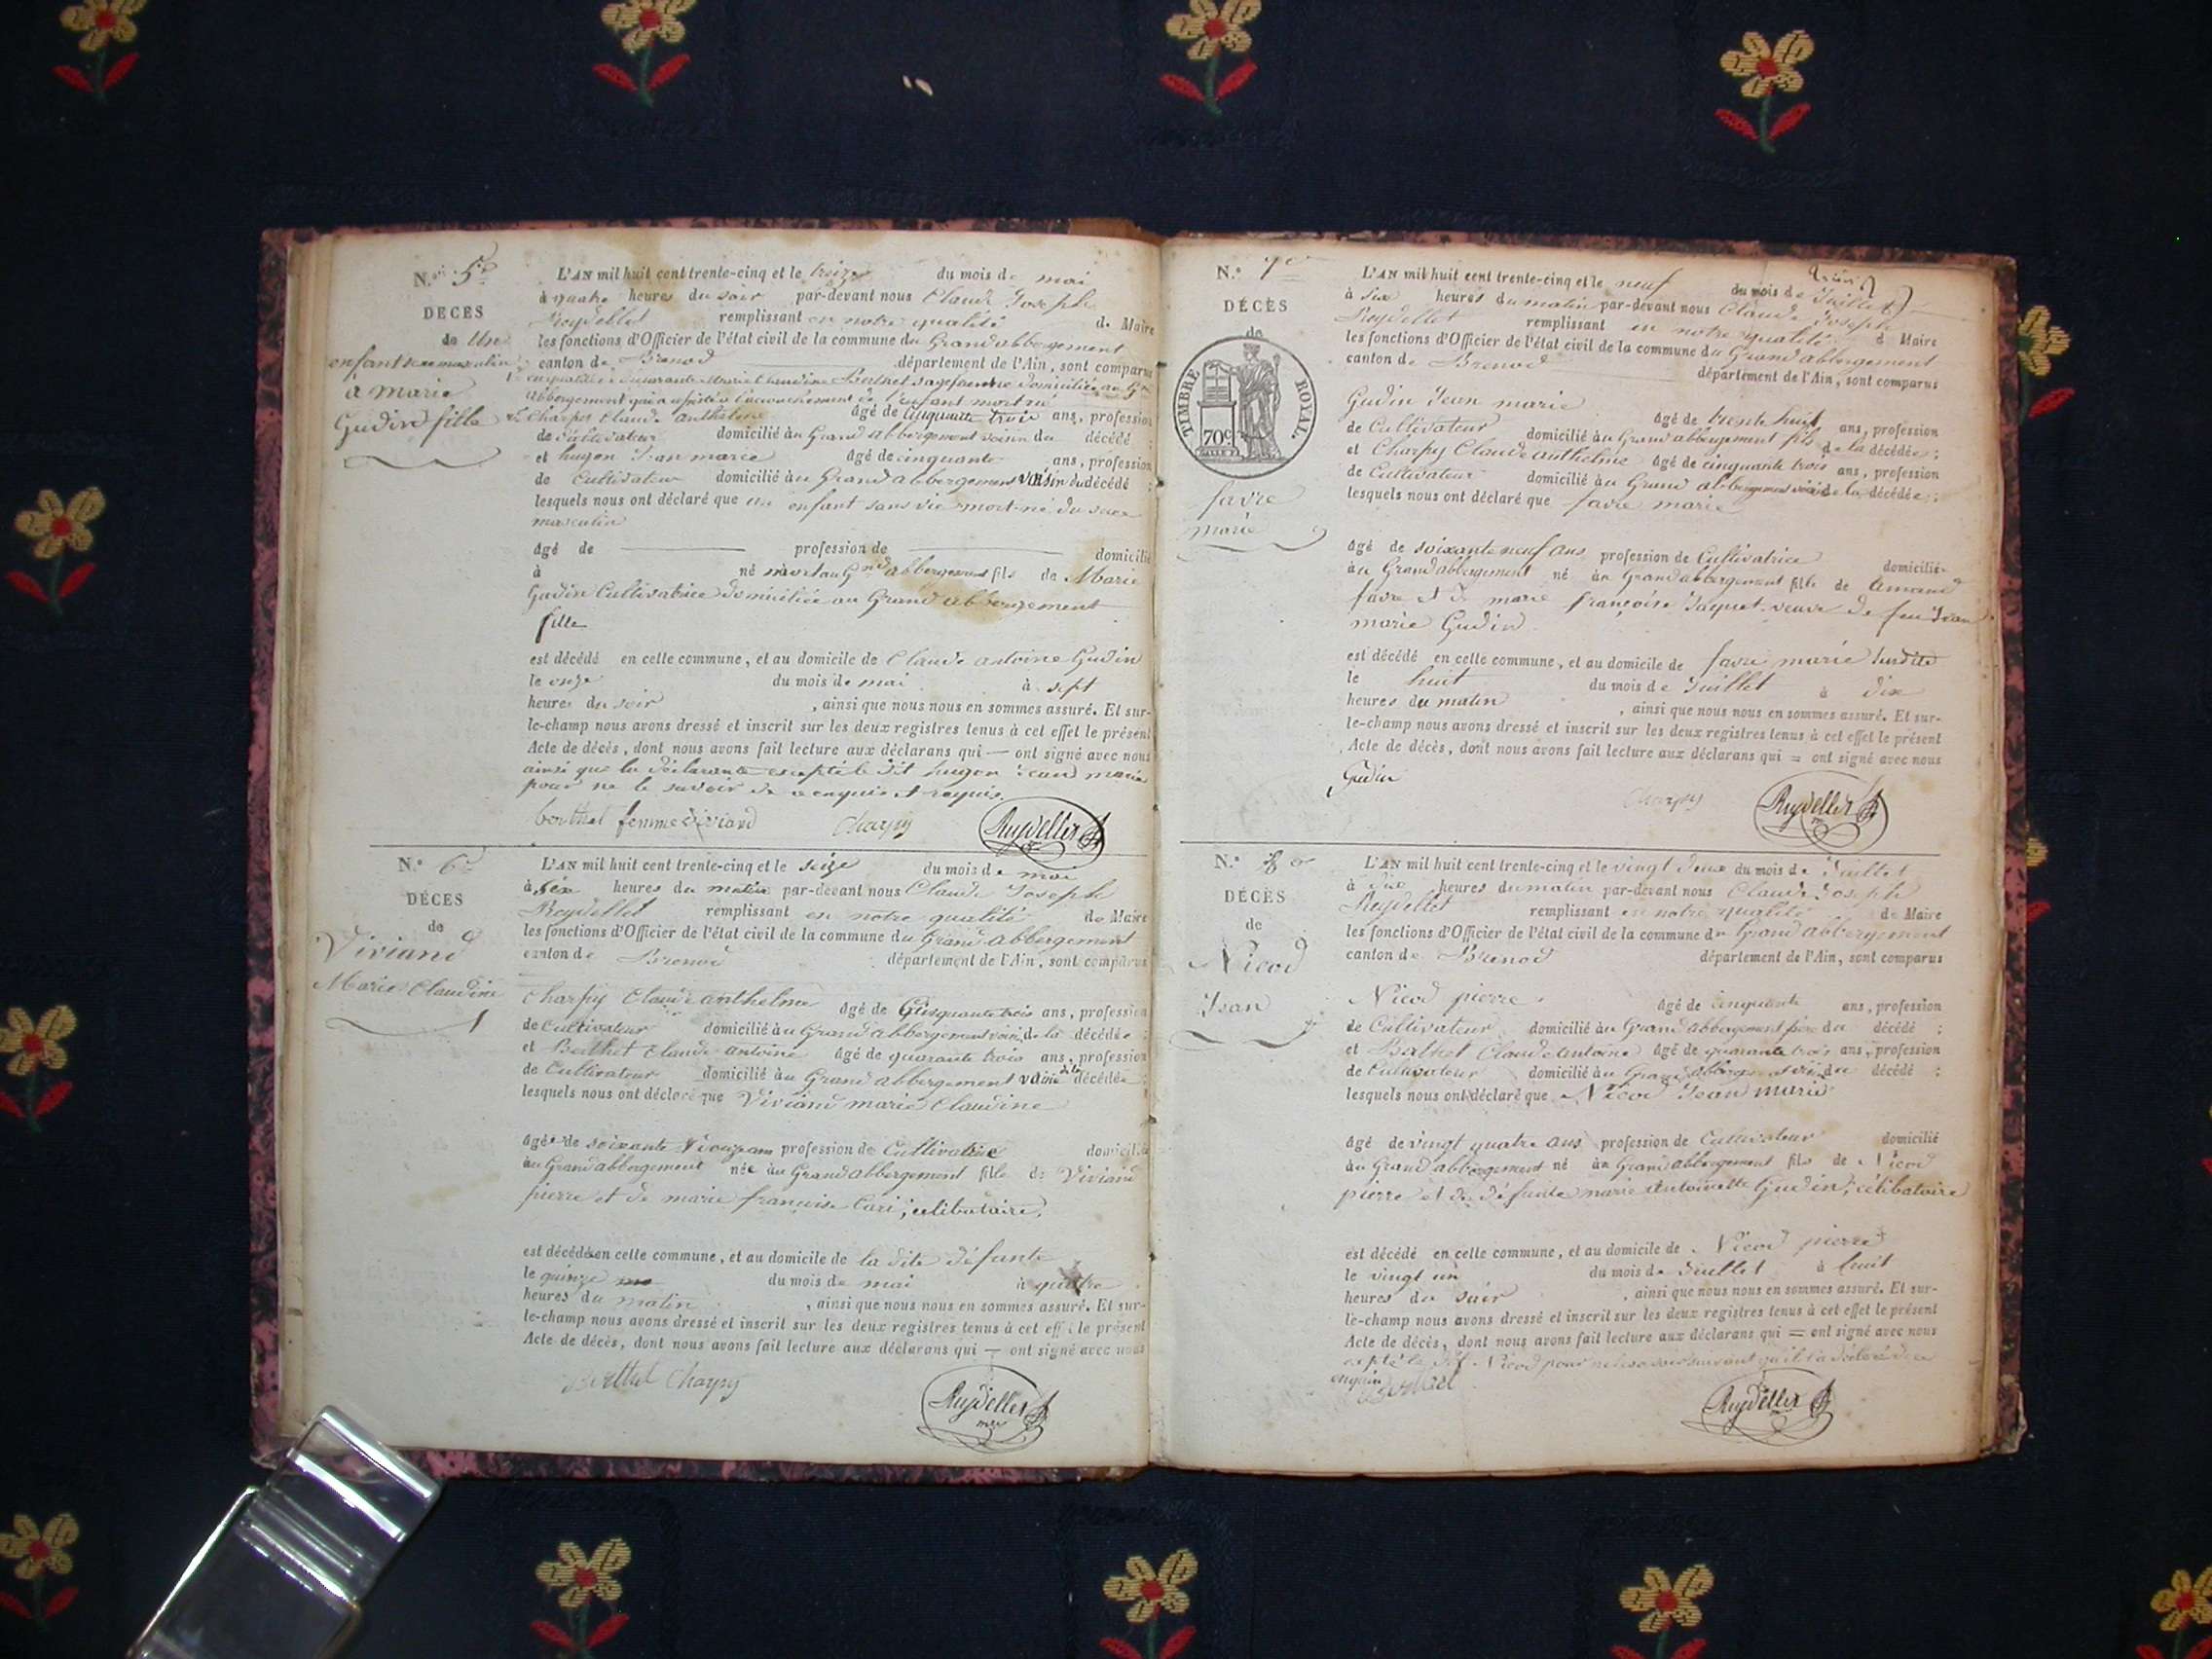 N.º 5
DÉCES
de Un
enfant masculin
à Marie
Gudin fille
L'AN mil huit cent trente-cinq et le treize du mois de mai
à quatre heures du soir par-devant nous Claude Joseph
Reydellet remplissant en notre qualité de Maire
les fonctions d'Officier de l'état civil de la commune du Grand abbergement
canton de Brenod département de l'Ain, sont comparus
Marie Claudine Berthet sagefemme domiciliée au Gnd
abbergement qui a assisté à l'accouchement de l'enfant mort né
Charpy Claude anthelme âgé de Cinquante trois ans, profession
de Cultivateur domicilié au Grand abbergement voisin du décédé ;
et hugon Jean marie âgé de cinquante ans, profession
de Cultivateur domicilié au Grand abbergement voisin du décédé ;
lesquels nous ont déclaré que un enfant sans vie mort-né du sexe
masculin
âgé de profession de domicilié
à né mort au Gnd abbergement fils de Marie
Gudin Cultivatrice domiciliée au Grand abbergement
fille
est décédé en celle commune, et au domicile de Claude antoine Gudin
le onze du mois de mai à sept
heures du soir , ainsi que nous nous en sommes assuré. Et sur-
le-champ nous avons dressé et inscrit sur les deux registres tenus à cet effet le présent
Acte de décès, dont nous avons fait lecture aux déclarans qui — ont signé avec nous
ainsi que la déclarante excepté le dit hugon Jean marie
pour ne le savoir de ce enquis et requis.
berthet femme viviand Charpy Reydellet
N.º 6
DÉCES
de
Viviand
Marie Claudine
L'AN mil huit cent trente-cinq et le seize du mois de mai
à six heures du matin par-devant nous Claude Joseph
Reydellet remplissant en notre qualité de Maire
les fonctions d'Officier de l'état civil de la commune du Grand abbergement
canton de Brenod département de l'Ain, sont comparus
Charpy Claude anthelme âgé de Cinquante trois ans, profession
de Cultivateur domicilié au Grand abbergement voisin de la décédée ;
et Berthet Claude antoine âgé de quarante trois ans, profession
de Cultivateur domicilié au Grand abbergement voisin de la décédée ;
lesquels nous ont déclaré que Viviand marie Claudine
âgée de soixante ans profession de Cultivatrice domicilié
au Grand abbergement née au Grand abbergement fille de Viviand
pierre et de marie françoise Cari, célibataire,
est décédée en celle commune, et au domicile de la dite défunte
le quinze du mois de mai à quatre
heures du matin , ainsi que nous nous en sommes assuré. Et sur-
le-champ nous avons dressé et inscrit sur les deux registres tenus à cet effet le présent
Acte de décès, dont nous avons fait lecture aux déclarans qui — ont signé avec nous
Berthet Charpy Reydellet
N.º 7
DÉCÈS
de
TIMBRE ROYAL.
70c
favre
marie
L'AN mil huit cent trente-cinq et le neuf du mois de Juillet
à six heures du matin par-devant nous Claude Joseph
Reydellet remplissant en notre qualité d Maire
les fonctions d'Officier de l'état civil de la commune du Grand abbergement
canton de Brenod département de l'Ain, sont comparus
Gudin Jean marie âgé de trente huit ans, profession
de Cultivateur domicilié au Grand abbergement fils de la décédée ;
et Charpy Claude anthelme âgé de cinquante trois ans, profession
de Cultivateur domicilié au Grand abbergement voisin de la décédée ;
lesquels nous ont déclaré que favre marie
âgé de soixante neuf ans profession de Cultivatrice domicilié
au Grand abbergement né au Grand abbergement fille de amand
favre et de marie françoise Jaquet veuve de feu Jean
marie Gudin
est décédé en celle commune, et au domicile de favre marie susdite
le huit du mois de Juillet à dix
heures du matin , ainsi que nous nous en sommes assuré. Et sur-
le-champ nous avons dressé et inscrit sur les deux registres tenus à cet effet le présent
Acte de décès, dont nous avons fait lecture aux déclarans qui = ont signé avec nous
Gudin Charpy Reydellet
N.º 8
DÉCÈS
de
Nicod
Jean
L'AN mil huit cent trente-cinq et le vingt deux du mois de Juillet
à dix heures du matin par-devant nous Claude Joseph
Reydellet remplissant en notre qualité de Maire
les fonctions d'Officier de l'état civil de la commune du Grand abbergement
canton de Brenod département de l'Ain, sont comparus
Nicod pierre âgé de cinquante ans, profession
de Cultivateur domicilié au Grand abbergement père du décédé ;
et Berthet Claude antoine âgé de quarante trois ans, profession
de Cultivateur domicilié au Grand abbergement voisin du décédé ;
lesquels nous ont déclaré que Nicod Jean marie
âgé de vingt quatre ans profession de Cultivateur domicilié
au Grand abbergement né au Grand abbergement fils de Nicod
pierre et de défunte marie Antoinette Gudin, célibataire
est décédé en celle commune, et au domicile de Nicod pierre
le vingt un du mois de Juillet à huit
heures du soir , ainsi que nous nous en sommes assuré. Et sur-
le-champ nous avons dressé et inscrit sur les deux registres tenus à cet effet le présent
Acte de décès, dont nous avons fait lecture aux déclarans qui = ont signé avec nous
excepté le dit Nicod pour ne le savoir suivant qu'il l'a déclaré de ce
enquis
Berthet Reydellet